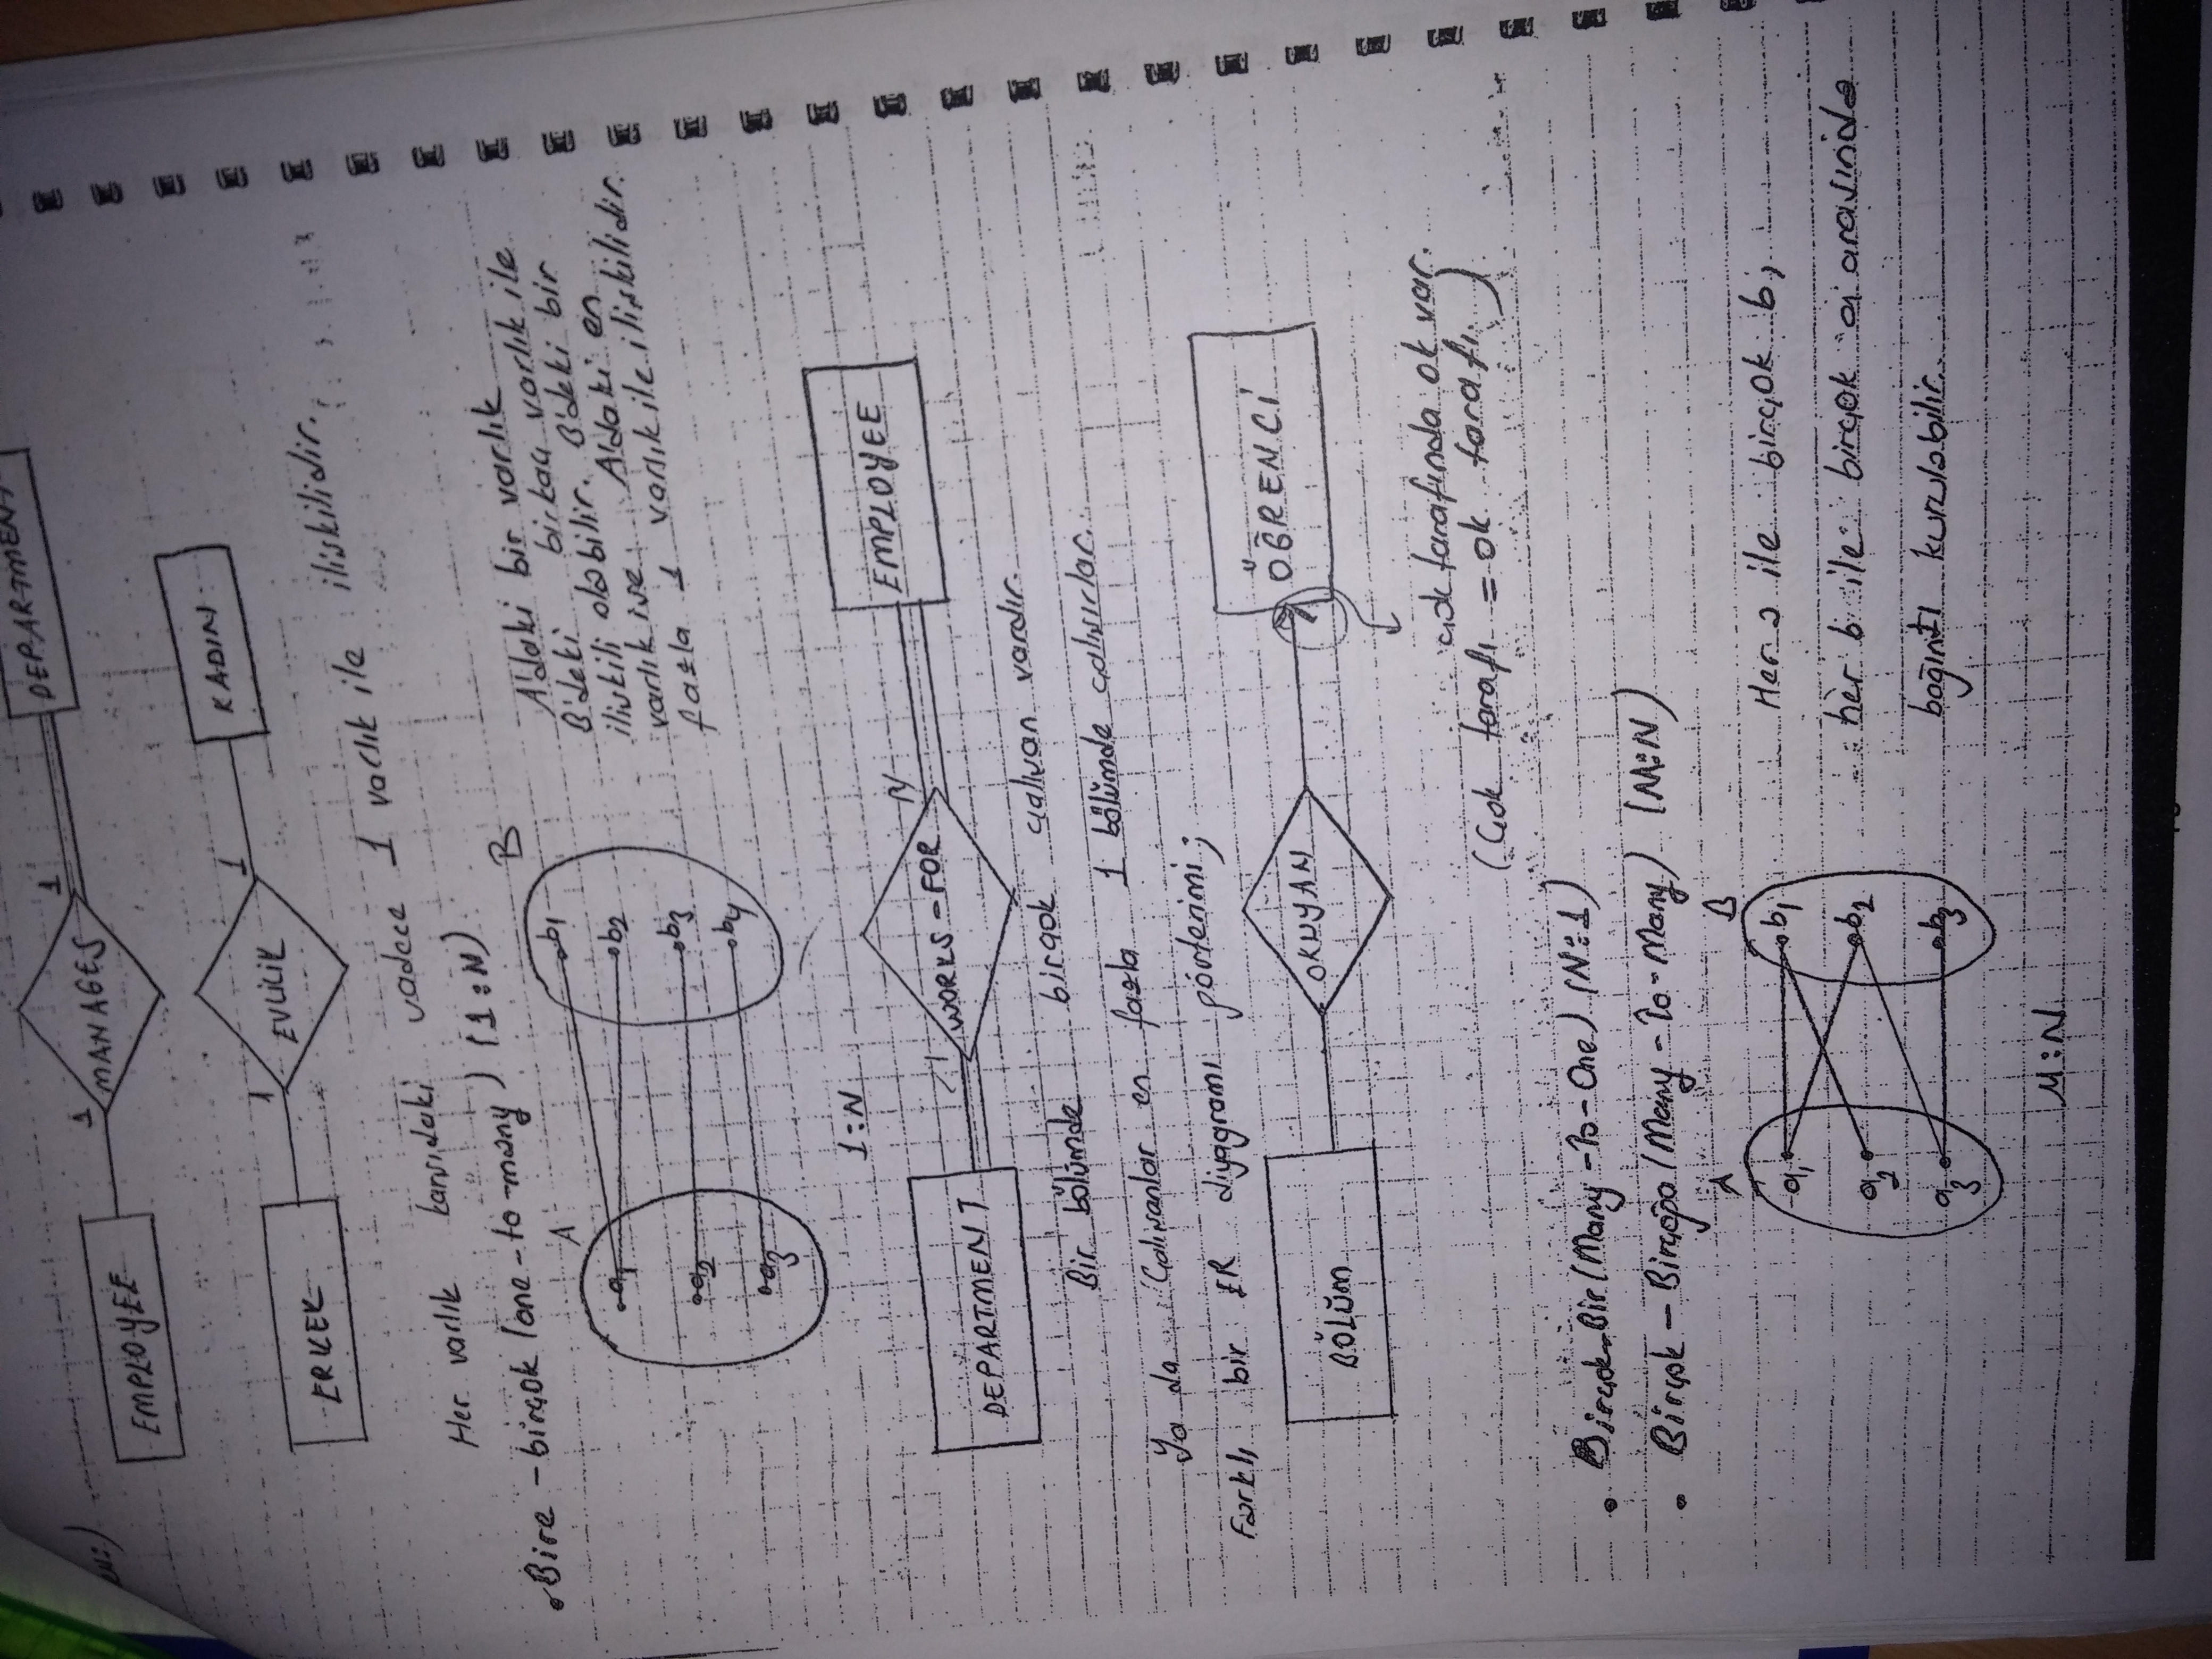 EMPLOYEE 1 MANAGES 1 DEPARTMENT
ERKEK 1 EVLİLİK 1 KADIN
Her varlık karşıdaki sadece 1 varlık ile ilişkilidir.
Bire - birçok (one-to-many) (1:N)
A B
a1 b1
a2 b2
a3 b3
b4
1:N
A'daki bir varlık
B'deki birkaç varlık ile
ilişkili olabilir. B'deki bir
varlık ise A'daki en
fazla 1 varlık ile ilişkilidir.
DEPARTMENT 1 WORKS-FOR N EMPLOYEE
Bir bölümde birçok çalışan vardır.
Ya da Çalışanlar en fazla 1 bölümde çalışırlar.
Farklı bir ER diyagramı gösterimi;
BÖLÜM OKUYAN ÖĞRENCİ
çok tarafında ok var.
(Çok tarafı = ok tarafı)
Birçok-Bir (Many-to-One) (N:1)
Birçok - Birçoğa (Many-to-Many) (M:N)
A B
a1 b1
a2 b2
a3 b3
Her a ile birçok b,
her b ile birçok a arasında
bağıntı kurulabilir.
M:N